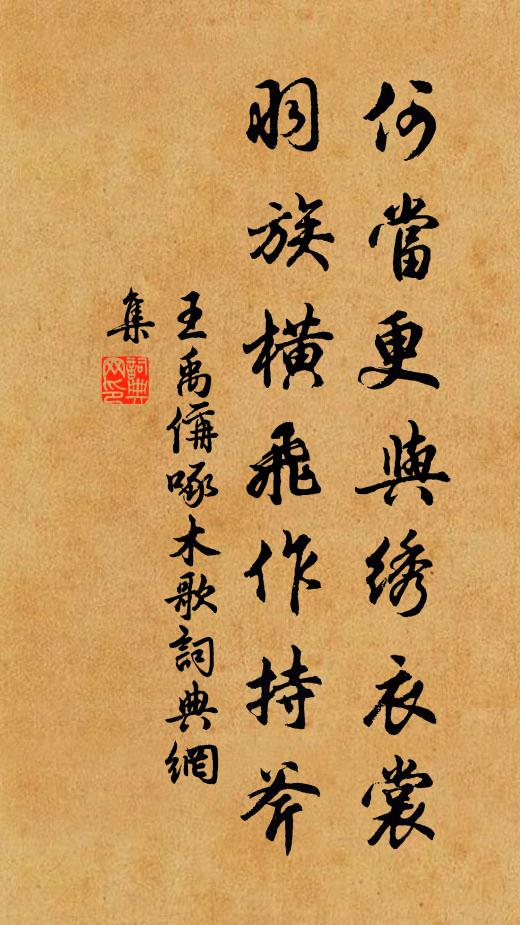 何當更與綉衣裳
羽族橫飛作持斧
王禹偁啄木歌詞典網
集
詞典
网印